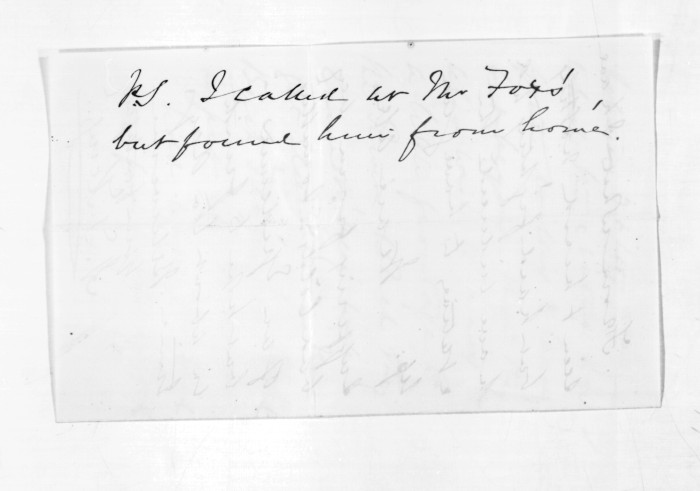 P.S. I called at Mr Fox's,
but found him from home.